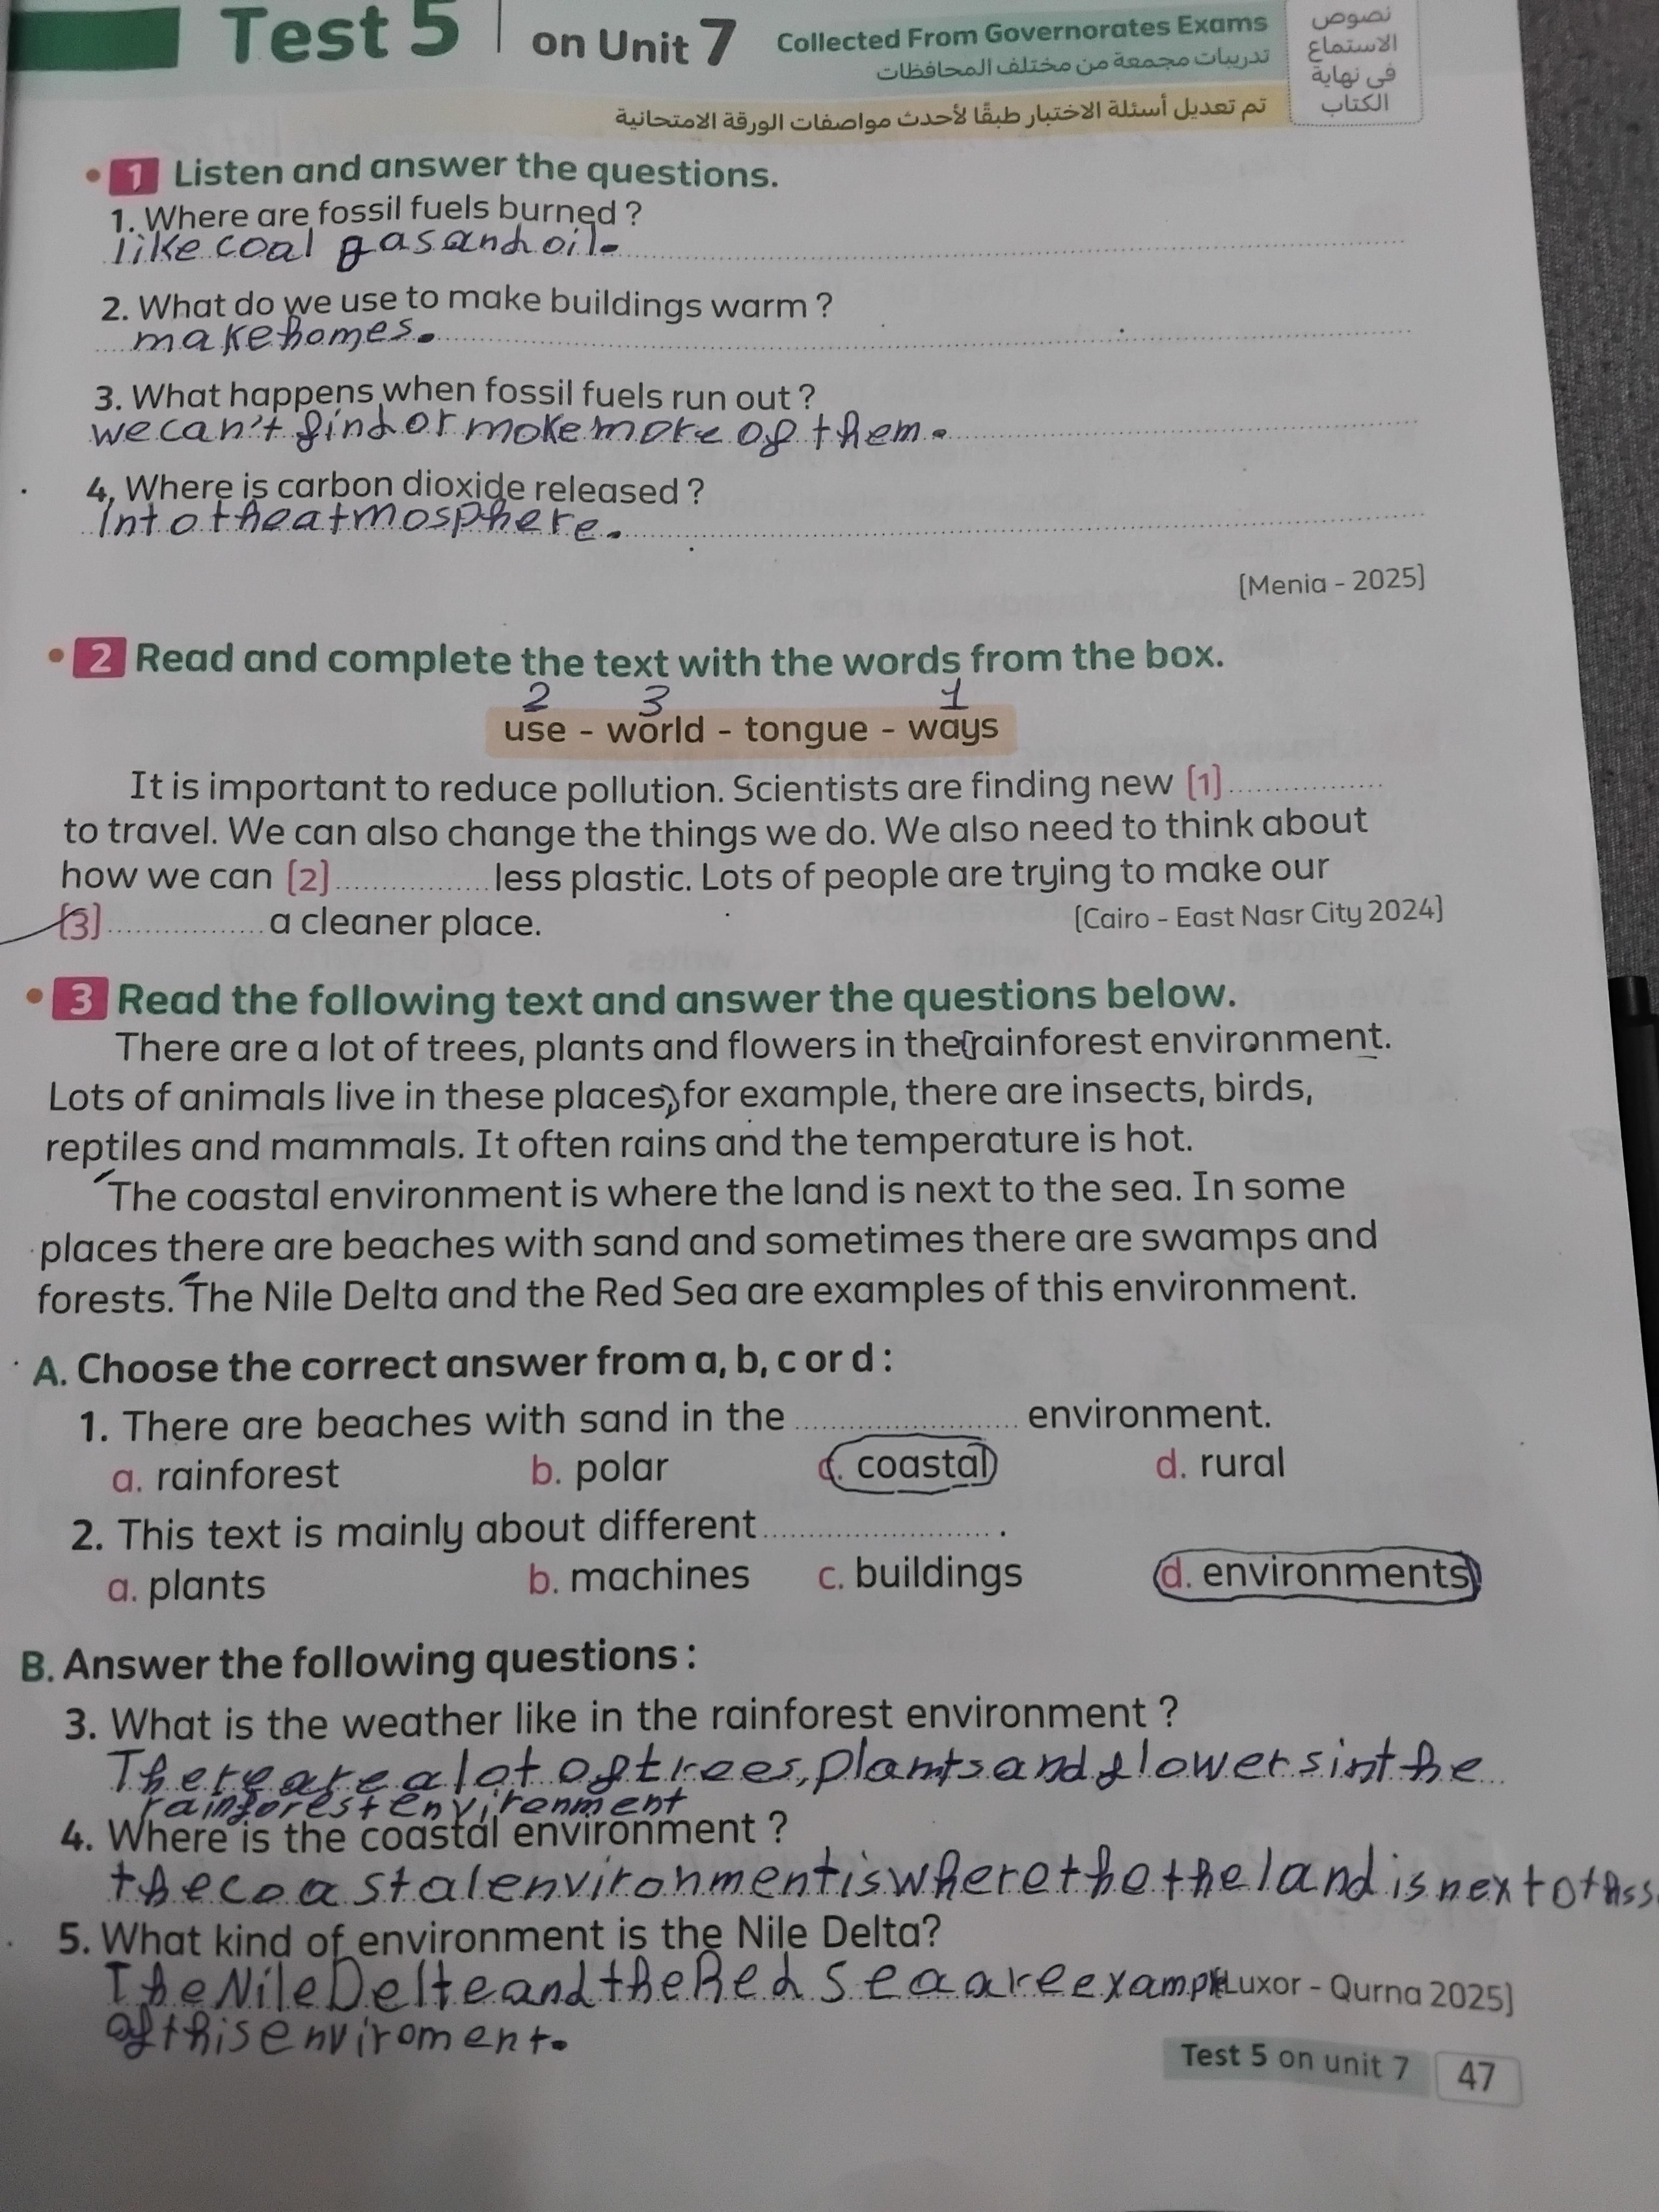 Test 5 on Unit 7 Collected From Governorates Exams
تدريبات مجمعة من مختلف المحافظات
نصوص
الاستماع
فى نهاية
الكتاب
تم تعديل أسئلة الاختبار طبقًا لأحدث مواصفات الورقة الامتحانية
1 Listen and answer the questions.
1. Where are fossil fuels burned ?
like coal gas and oil.
2. What do we use to make buildings warm ?
make homes.
3. What happens when fossil fuels run out ?
we can't find or moke more of them.
4. Where is carbon dioxide released ?
Into the atmosphere.
[Menia - 2025]
2 Read and complete the text with the words from the box.
2 3 1
use - world - tongue - ways
It is important to reduce pollution. Scientists are finding new [1]
to travel. We can also change the things we do. We also need to think about
how we can [2] less plastic. Lots of people are trying to make our
[3] a cleaner place. [Cairo - East Nasr City 2024]
3 Read the following text and answer the questions below.
There are a lot of trees, plants and flowers in the rainforest environment.
Lots of animals live in these places, for example, there are insects, birds,
reptiles and mammals. It often rains and the temperature is hot.
The coastal environment is where the land is next to the sea. In some
places there are beaches with sand and sometimes there are swamps and
forests. The Nile Delta and the Red Sea are examples of this environment.
A. Choose the correct answer from a, b, c or d :
1. There are beaches with sand in the environment.
a. rainforest b. polar c. coastal d. rural
2. This text is mainly about different .
a. plants b. machines c. buildings d. environments
B. Answer the following questions :
3. What is the weather like in the rainforest environment ?
There are a lot of trees, plants and flowers in the
rainforest environment
4. Where is the coastal environment ?
the coastal environment is where the the land is next to
5. What kind of environment is the Nile Delta?
The Nile Delte and the Red Sea are exampl [Luxor - Qurna 2025]
of this enviroment.
Test 5 on unit 7 47